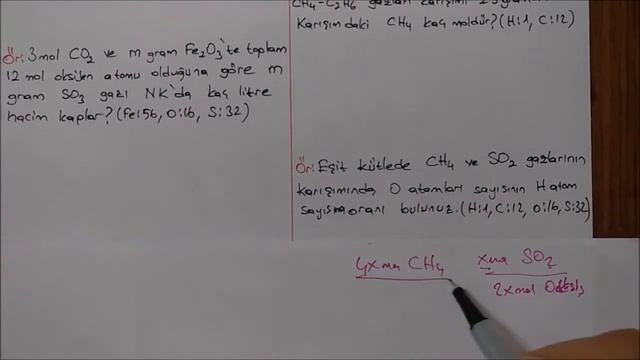 Ör: 3 mol CO2 ve m gram Fe2O3'te toplam
12 mol oksijen atomu olduğuna göre m
gram SO3 gazı NK'da kaç litre
hacim kaplar? (Fe:56, O:16, S:32)
CH4-C2H6 gazları karışımı
Karışımdaki CH4 kaç moldür? (H:1, C:12)
Ör: Eşit kütlede CH4 ve SO2 gazlarının
karışımında O atomları sayısının H atom
sayısına oranı bulunuz. (H:1, C:12, O:16, S:32)
4x mol CH4 x mol SO2
2x mol O